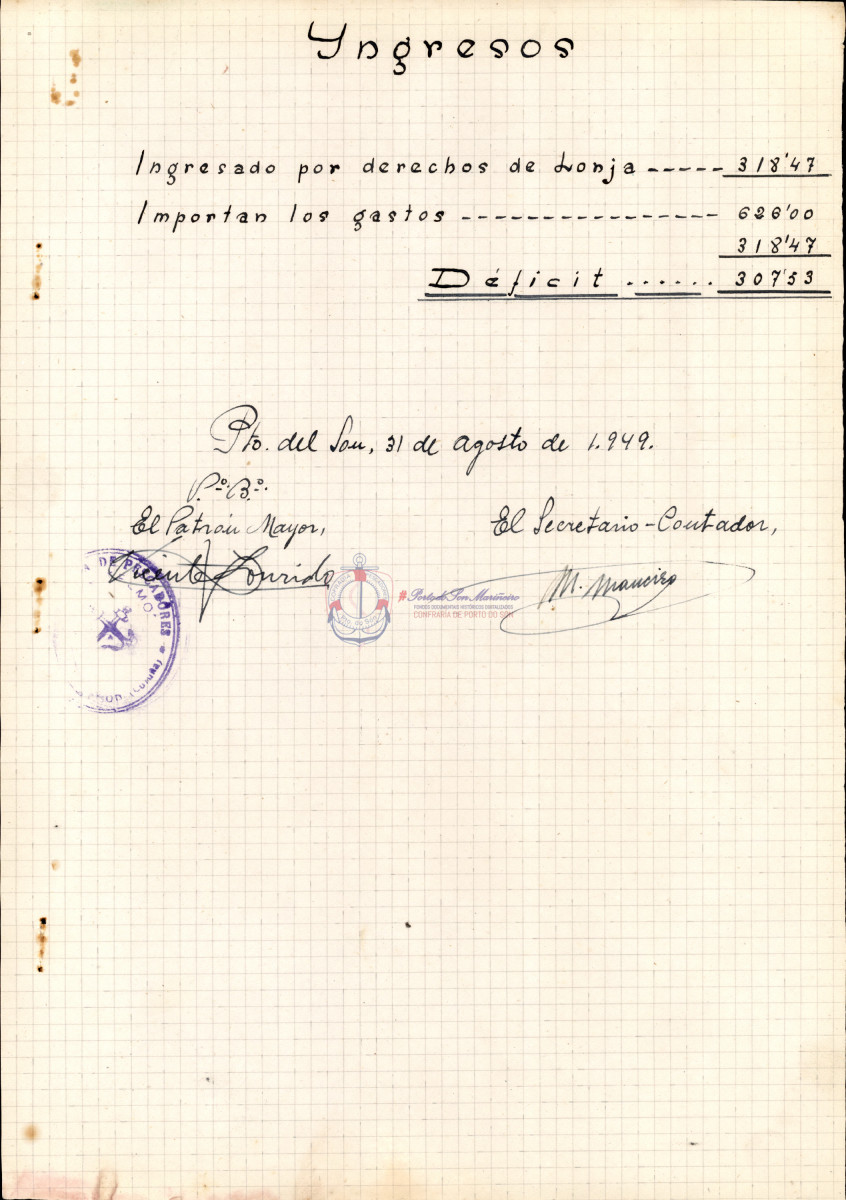 Yngresos
Ingresado por derechos de Lonja ----- 318'47
Importan los gastos ---------------- 626'00
318'47
Déficit ...... 307'53
Pto. del Son, 31 de agosto de 1.949.
V.º B.º.
El Patrón Mayor,
El Secretario-Contador,
Vicente Lourido
M. Maneiro
DE PESCADORES
#Porto do Son Mariñeiro
FONDOS DOCUMENTAIS HISTÓRICOS DIXITALIZADOS
CONFRARÍA DE PORTO DO SON